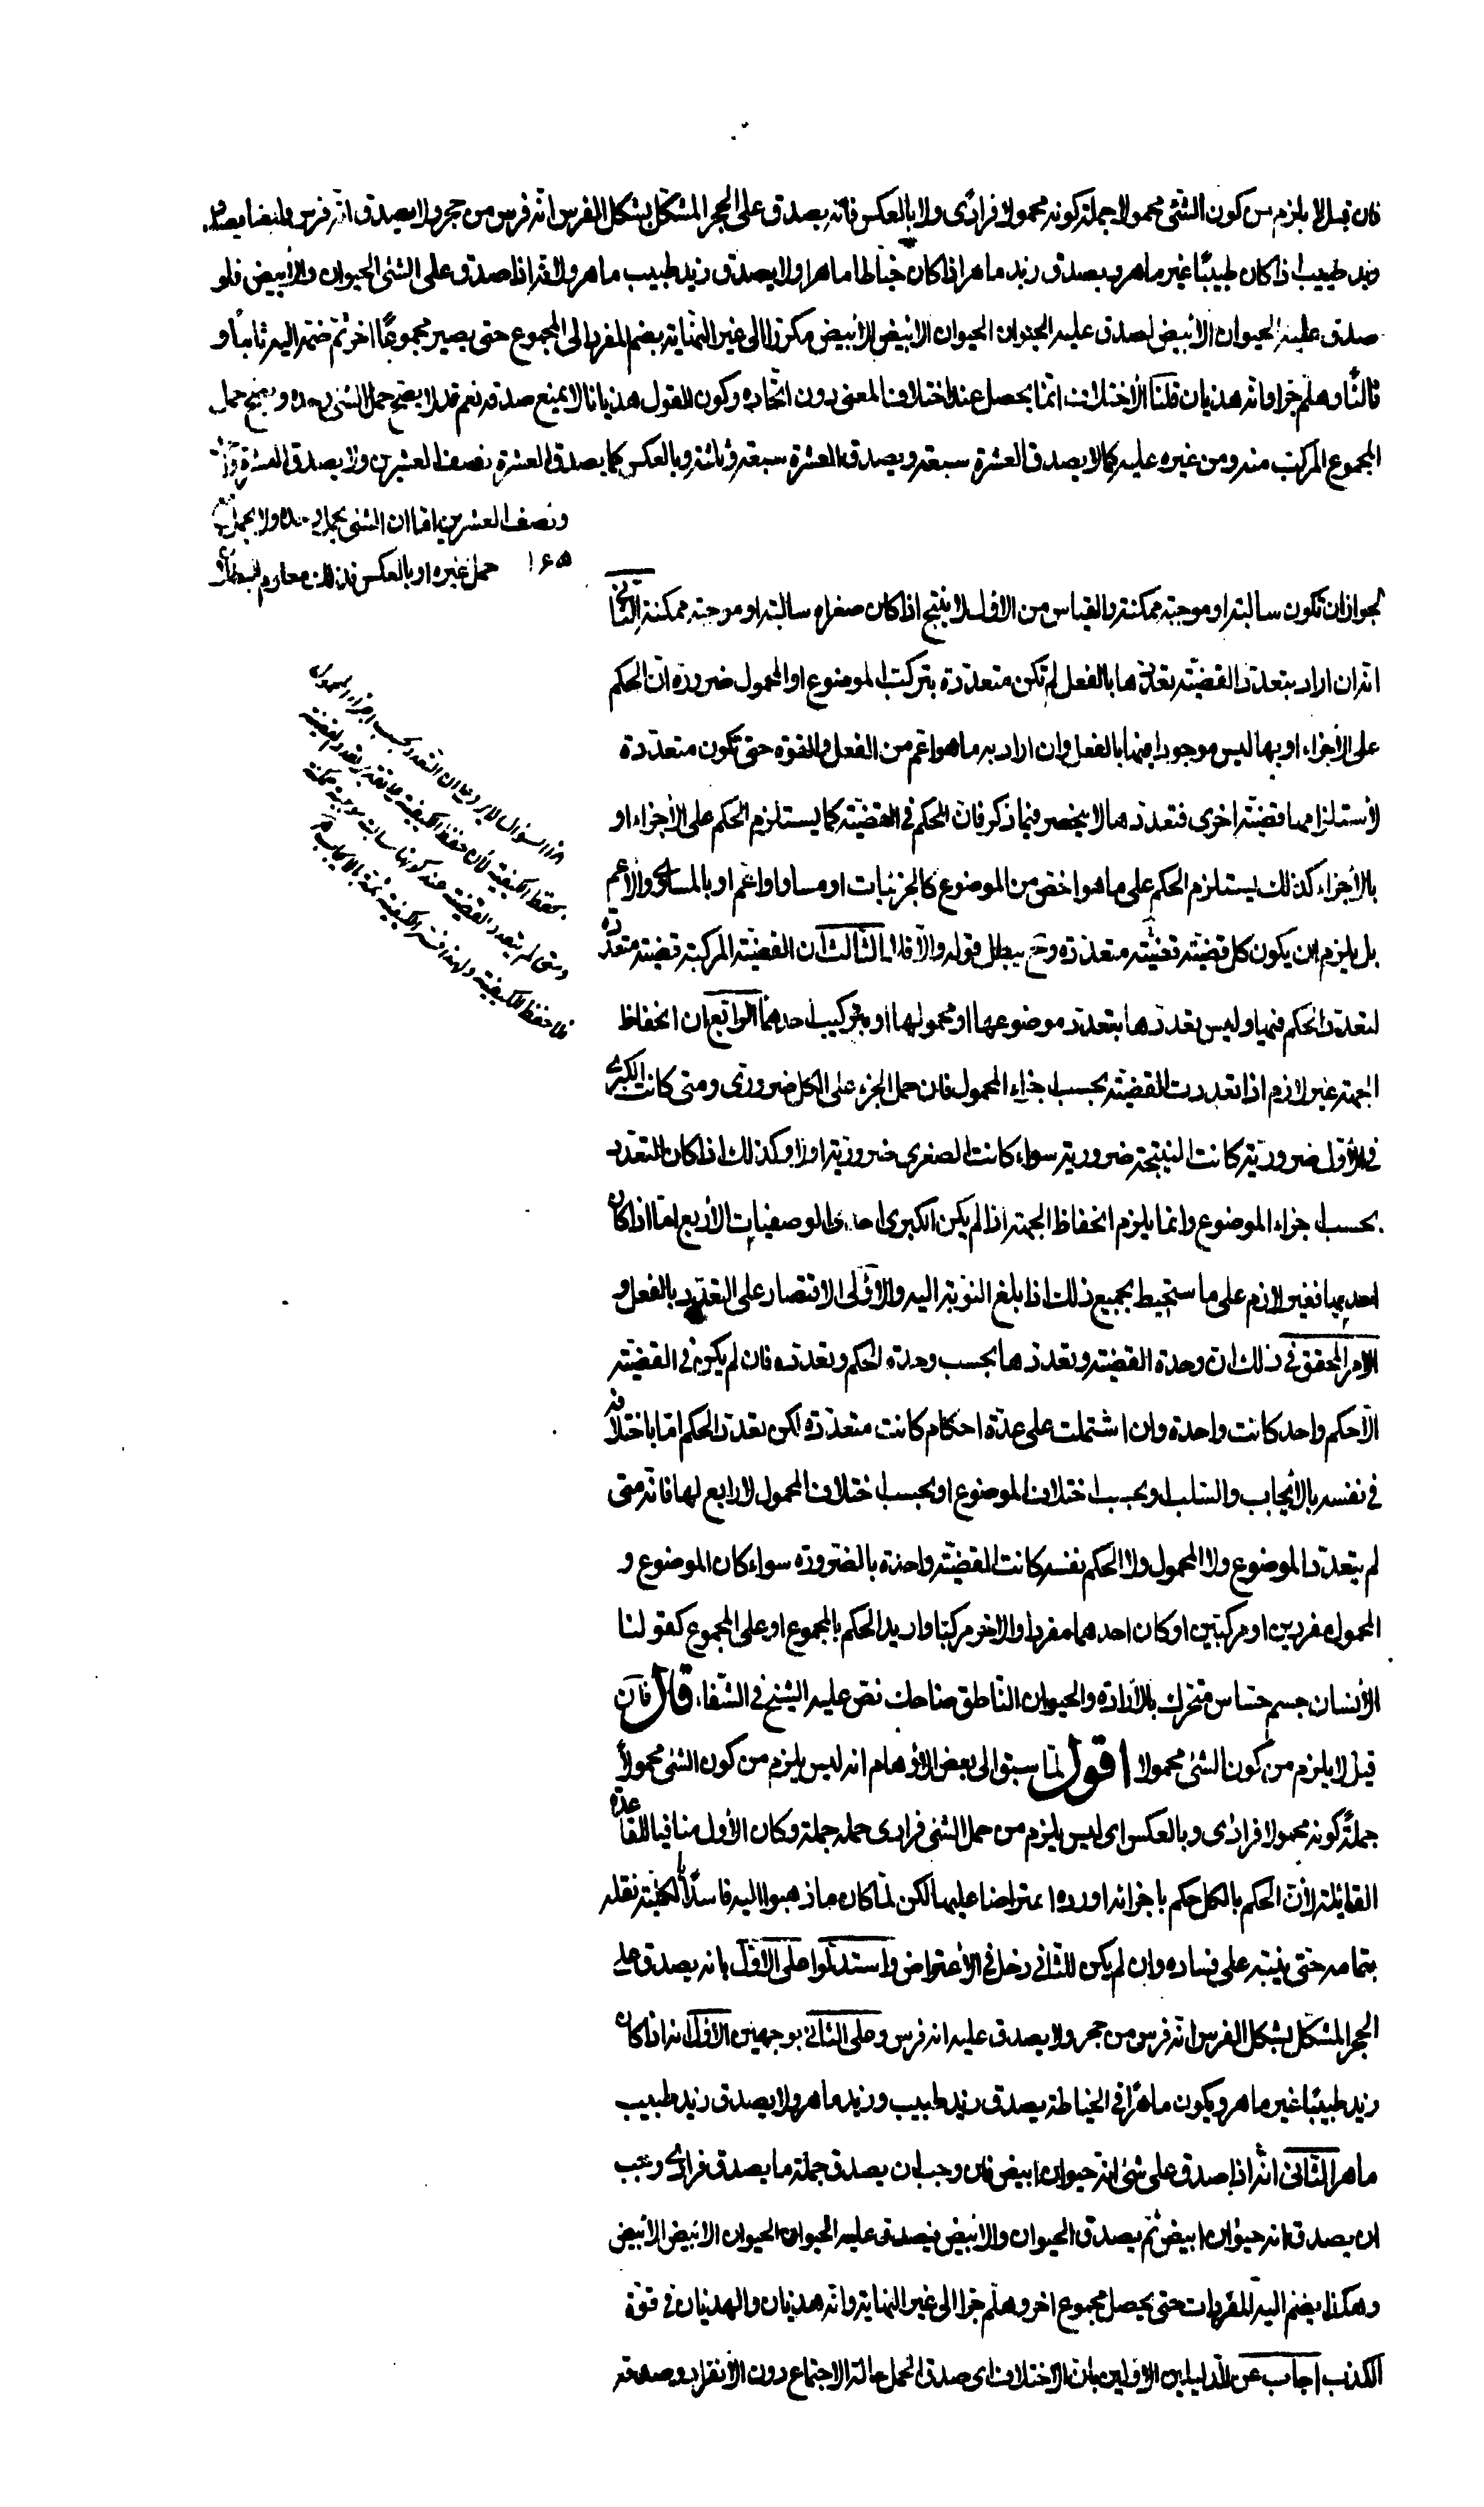 فان قيل لا يلزم من كون الشئ محمولا جملة كونه محمولا فرادى ولا بالعكس فانه يصدق على الحجر المشكل بشكل الفرس انه فرس من حجر ولا يصدق انه فرس وايضا يصدق
زيد طبيب اذا كان طبيبًا غير ماهر ويصدق زيد ماهر اذا كان خياطا ماهرا ولا يصدق زيد طبيب ماهر ولانه اذا صدق على الشئ الحيوان والأبيض فلو
صدق عليه الحيوان الأبيض لصدق عليه الحيوان الحيوان الابيض الأبيض هكذا الى غير النهاية بضم المفرد الى المجموع حتى يصير مجموعًا اخر ثم ضمه اليه ثانيًا و
ثالثًا وهلم جرا وانه هذيان قلنا الأختلاف انما يحصل عند اختلاف المعنى دون اتحاده وكون القول هذيانا لا يمنع صدقه نعم قد لا يصح حمل الشئ وحده ويصح حمل
المجموع المركب منه ومن غيره عليه كما لا يصدق العشرة سبعة ويصدق العشرة سبعة وثلثة وبالعكس كما يصدق العشرة نصف العشرين ولا يصدق العشرة
ونصف العشرين اما ان الشئ يحمل وحده ولا يحمل
حمل غيره او بالعكس فذلك معلوم البطلان
لجواز ان تكون سالبة او موجبة ممكنة والقياس من الاول لا ينتج اذا كان صغراه سالبة او موجبة ممكنة الثانى
انه ان اراد بتعدد القضية تعددها بالفعل لم تكن متعددة بتركب الموضوع او المحمول ضرورة ان الحكم
على الأجزاء او بها ليس موجودا فيها بالفعل وان اراد به ما هو اعم من الفعل والقوة حتى تكون متعددة
لأستلزامها قضية اخرى فتعددها لا ينحصر فيما ذكر فان الحكم فى القضية كما يستلزم الحكم على الأجزاء او
بالأجزاء كذلك يستلزم الحكم على ما هو اخص من الموضوع كالجزئيات او مساو او اعم او بالمساوى والأعم
بل يلزم ان يكون كل قضية قضية متعددة وح يبطل قوله والا فلا الثالث ان القضية المركبة قضية متعددة
لتعدد الحكم فيها وليس تعددها بتعدد موضوعها او محمولها او بتركيب احدهما الرابع ان انحفاظ
الجهة غير لازم اذا تعددت القضية بحسب اجزاء المحمول فان حمل الجزء على الكل ضرورى ومتى كانت الكبرى
فى الأول ضرورية كانت النتيجة ضرورية سواء كانت الصغرى ضرورية او لا وكذلك اذا كان التعدد
بحسب اجزاء الموضوع وانما يلزم انحفاظ الجهة اذا لم يكن الكبرى احدى الوصفيات الأربع اما اذا كان
احديها فغير لازم على ما ستحيط بجميع ذلك اذا بلغ النوبة اليه والأولى الاقتصار على التعدد بالفعل و
الامر المحقق فى ذلك ان وحدة القضية وتعددها بحسب وحدة الحكم وتعدده فان لم يكن فى القضية
الا حكم واحد كانت واحدة وان اشتملت على عدة احكام كانت متعددة لكن تعدد الحكم اما باختلافه
فى نفسه بالأيجاب والسلب او بحسب اختلاف الموضوع او بحسب اختلاف المحمول لا رابع لها فانه متى
لم يتعدد الموضوع ولا المحمول ولا الحكم نفسه كانت القضية واحدة بالضرورة سواء كان الموضوع و
المحمول مفردين او مركبين او كان احدهما مفردا والاخر مركبا واريد الحكم بالمجموع او على المجموع كقولنا
الأنسان جسم حساس متحرك بالأرادة والحيوان الناطق ضاحك نص عليه الشيخ فى الشفاء قال فان
قيل لا يلزم من كون الشئ محمولا اقول لما سبق الى بعض الأوهام انه ليس يلزم من كون الشئ محمولاً
جملةً كونه محمولا فرادى وبالعكس اى ليس يلزم من حمل الشئ فرادى حمله جملة وكان الأول منافيا للقاعدة
القائلة لأن الحكم بالكل حكم باجزائه اورده اعتراضا عليها لكن لما كان ما ذهبوا اليه فاسدًا بالكلية نقله
بتمامه حتى ينبه على فساده وان لم يكن للثانى دخل فى الأعتراض واستدلوا على الاول بانه يصدق على
الحجر المشكل بشكل الفرس انه فرس من حجر ولا يصدق عليه انه فرس وعلى الثانى بوجهين الأول انه اذا كان
زيد طبيبًا غير ماهر ويكون ماهرًا فى الخياطة يصدق زيد طبيب وزيد ماهر ولا يصدق زيد طبيب
ماهر الثانى انه اذا صدق على شئ انه حيوان ابيض فان وجب ان يصدق جملة ما يصدق فرادى وجب
ان يصدق انه حيوان ابيض ثم يصدق الحيوان والابيض فيصدق عليه الحيوان الحيوان الابيض الأبيض
وهكذا يضم اليه المفردات حتى يحصل مجموع اخر وهلم جرا الى غير النهاية وانه هذيان والهذيان فى قوة
الكذب اجاب عن الدليلين الاولين بان الاختلاف اى صدق الحمل حالة الاجتماع دون الأنفراد وصدقه